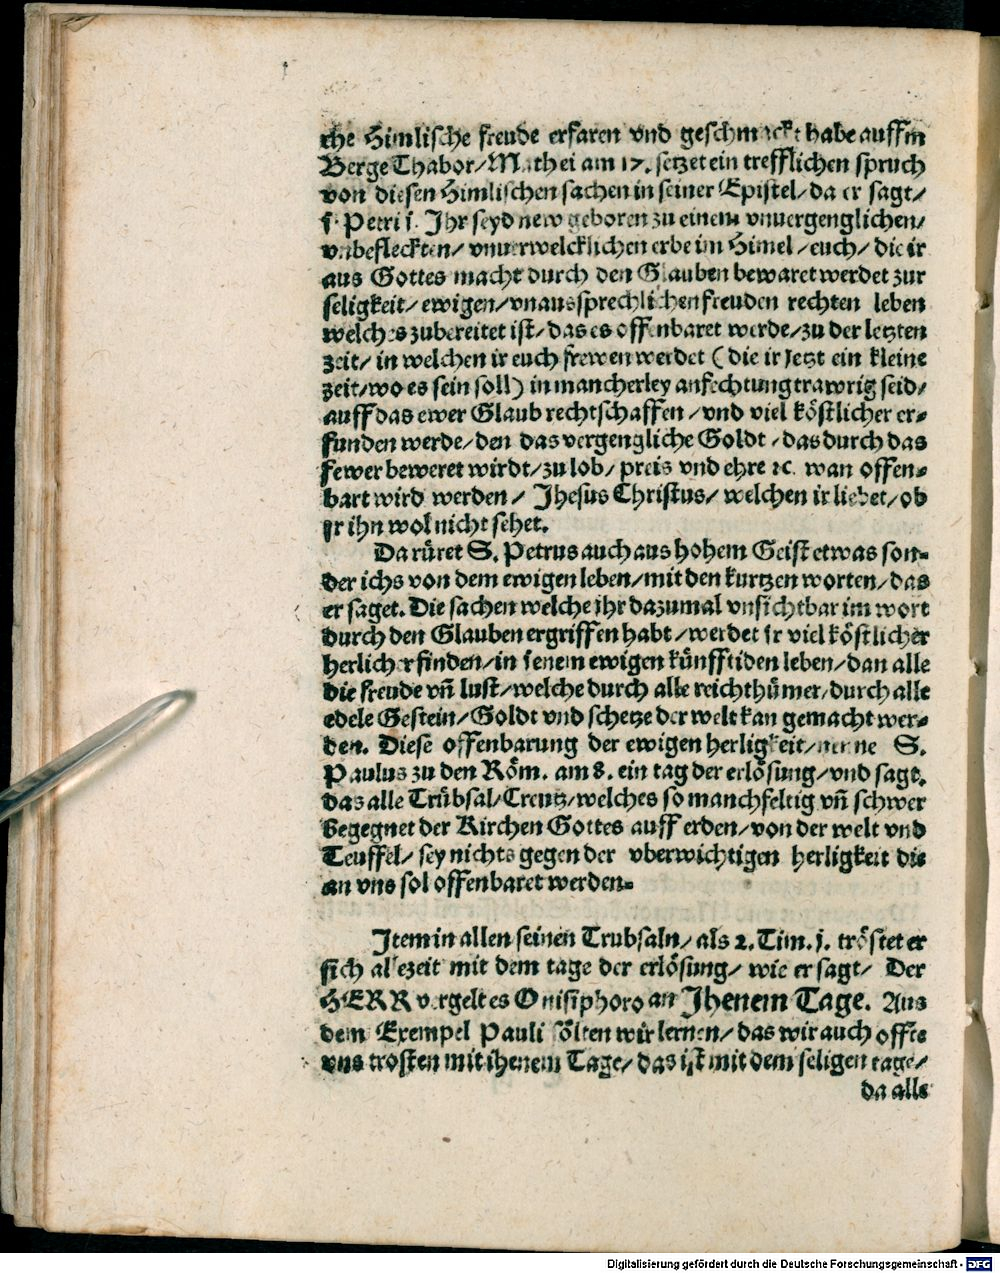 che Himlische freude erfaren vnd geschmackt habe auffm
Berge Thabor/Mathei am 17. setzet ein trefflichen spruch
von diesen Himlischen sachen in seiner Epistel/da er sagt/
1. Petri 1. Ihr seyd new geboren zu einem vnuergenglichen/
vnbefleckten/vnuerwelcklichen erbe im Himel/euch/die ir
aus Gottes macht durch den Glauben bewaret werdet zur
seligkeit/ewigen/vnaussprechlichen freuden rechten leben
welches zubereitet ist/das es offenbaret werde/zu der letzten
zeit/in welchen ir euch frewen werdet (die ir Jetzt ein kleine
zeit/wo es sein soll) in mancherley anfechtung trawrig seid/
auff das ewer Glaub rechtschaffen/vnd viel köstlicher er-
funden werde/den das vergengliche Goldt/das durch das
fewer beweret wirdt/zu lob/preis vnd ehre ꝛc. wan offen-
bart wird werden/ Jhesus Christus/welchen ir liebet/ob
jr ihn wol nicht sehet.
Da rüret S. Petrus auch aus hohem Geist etwas son-
derichs von dem ewigen leben/mit den kurtzen worten/das
er saget. Die sachen welche jhr dazumal vnsichtbar im wort
durch den Glauben ergriffen habt/werdet jr viel köstlicher
herlicher finden/in jenem ewigen künfftiden leben/dan alle
die freude vñ lust/welche durch alle reichthümer/durch alle
edele Gestein/Goldt vnd schetze der welt kan gemacht wer-
den. Diese offenbarung der ewigen herligkeit/nenne S.
Paulus zu den Röm. am 8. ein tag der erlösung/vnd sagt.
das alle Trübsal/Creutz/welches so manchfeltig vñ schwer
begegnet der Kirchen Gottes auff erden/von der welt vnd
Teuffel/sey nichts gegen der vberwichtigen herligkeit die
an vns sol offenbaret werden.
Jtem in allen seinen Trubsaln/als 2. Tim. j. tröstet er
sich allezeit mit dem tage der erlösung/wie er sagt/ Der
HERR vergelt es Onisiphoro an Jhenem Tage. Aus
dem Exempel Pauli sölten wir lernen/das wir auch offte
vns trosten mit ihenem Tage/das ist mit dem seligen tage/
da alle
Digitalisierung gefördert durch die Deutsche Forschungsgemeinschaft - DFG